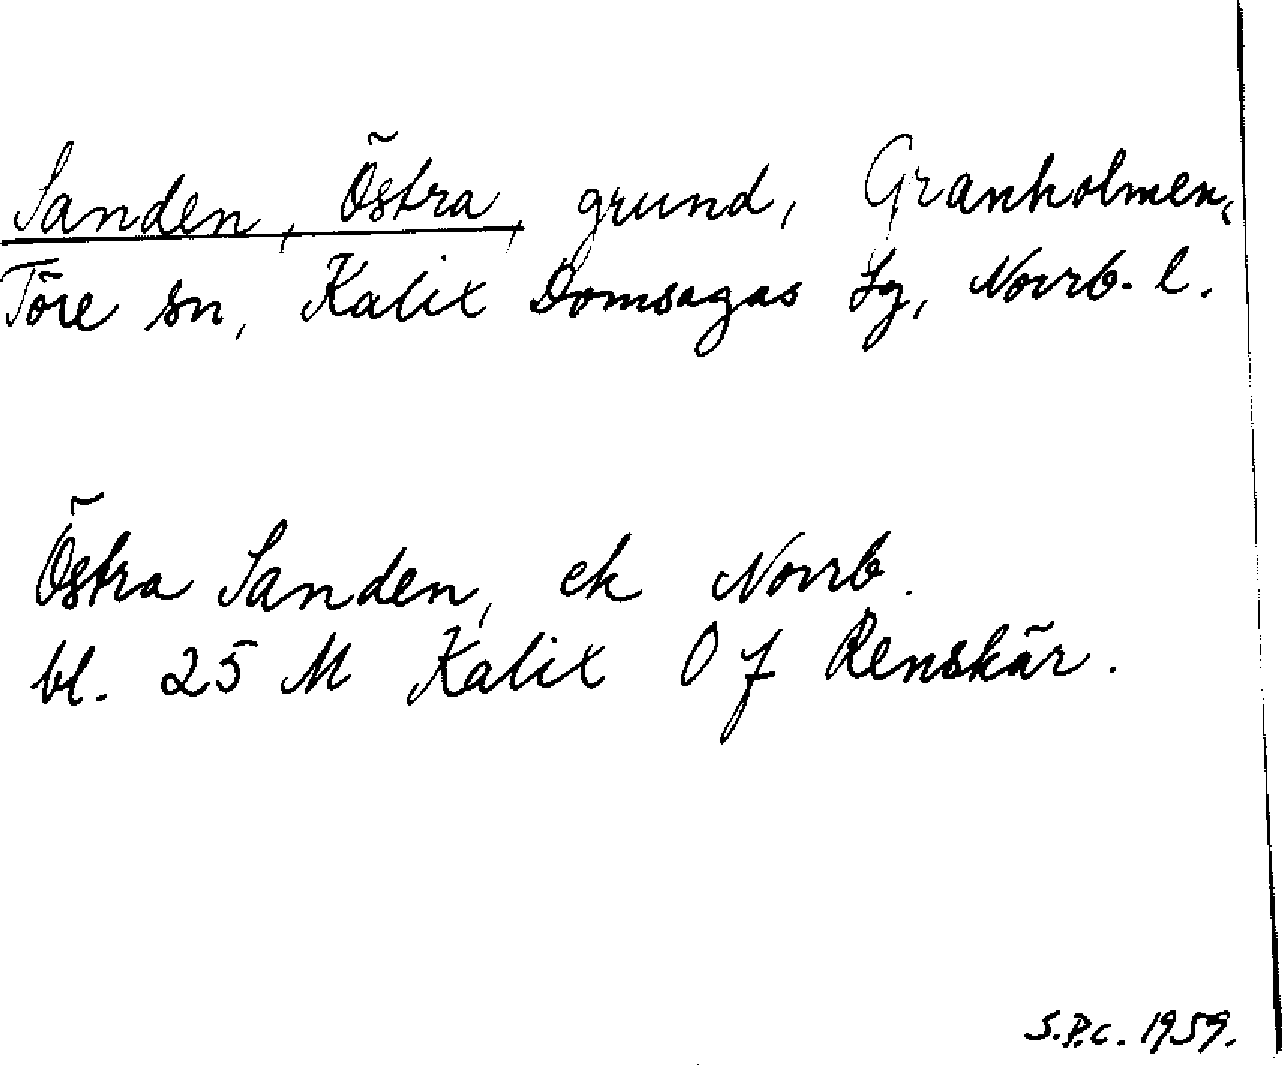 Sanden, Östra, grund, Granholmen,
Töre sn, Kalix Domsagas Lg, Norrb. l.
Östra Sanden, ek Norrb.
bl. 25 M Kalix O f Renskär.
S.P.C. 1959.